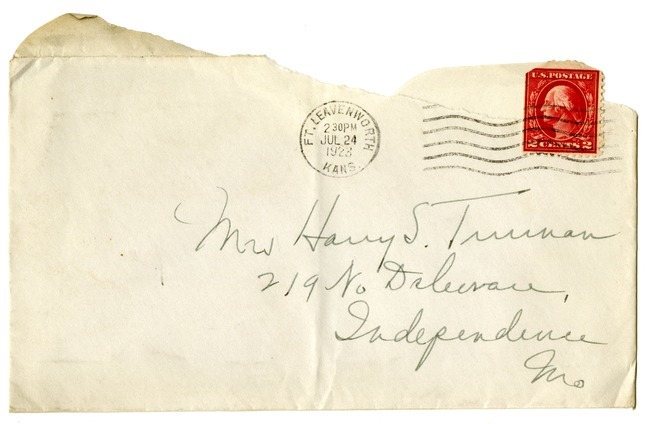 U.S. POSTAGE
2 CENTS 2
FT. LEAVENWORTH
2 30 PM
JUL 24
1923
KANS.
Mrs Harry S. Truman
219 No Delaware,
Independence
Mo